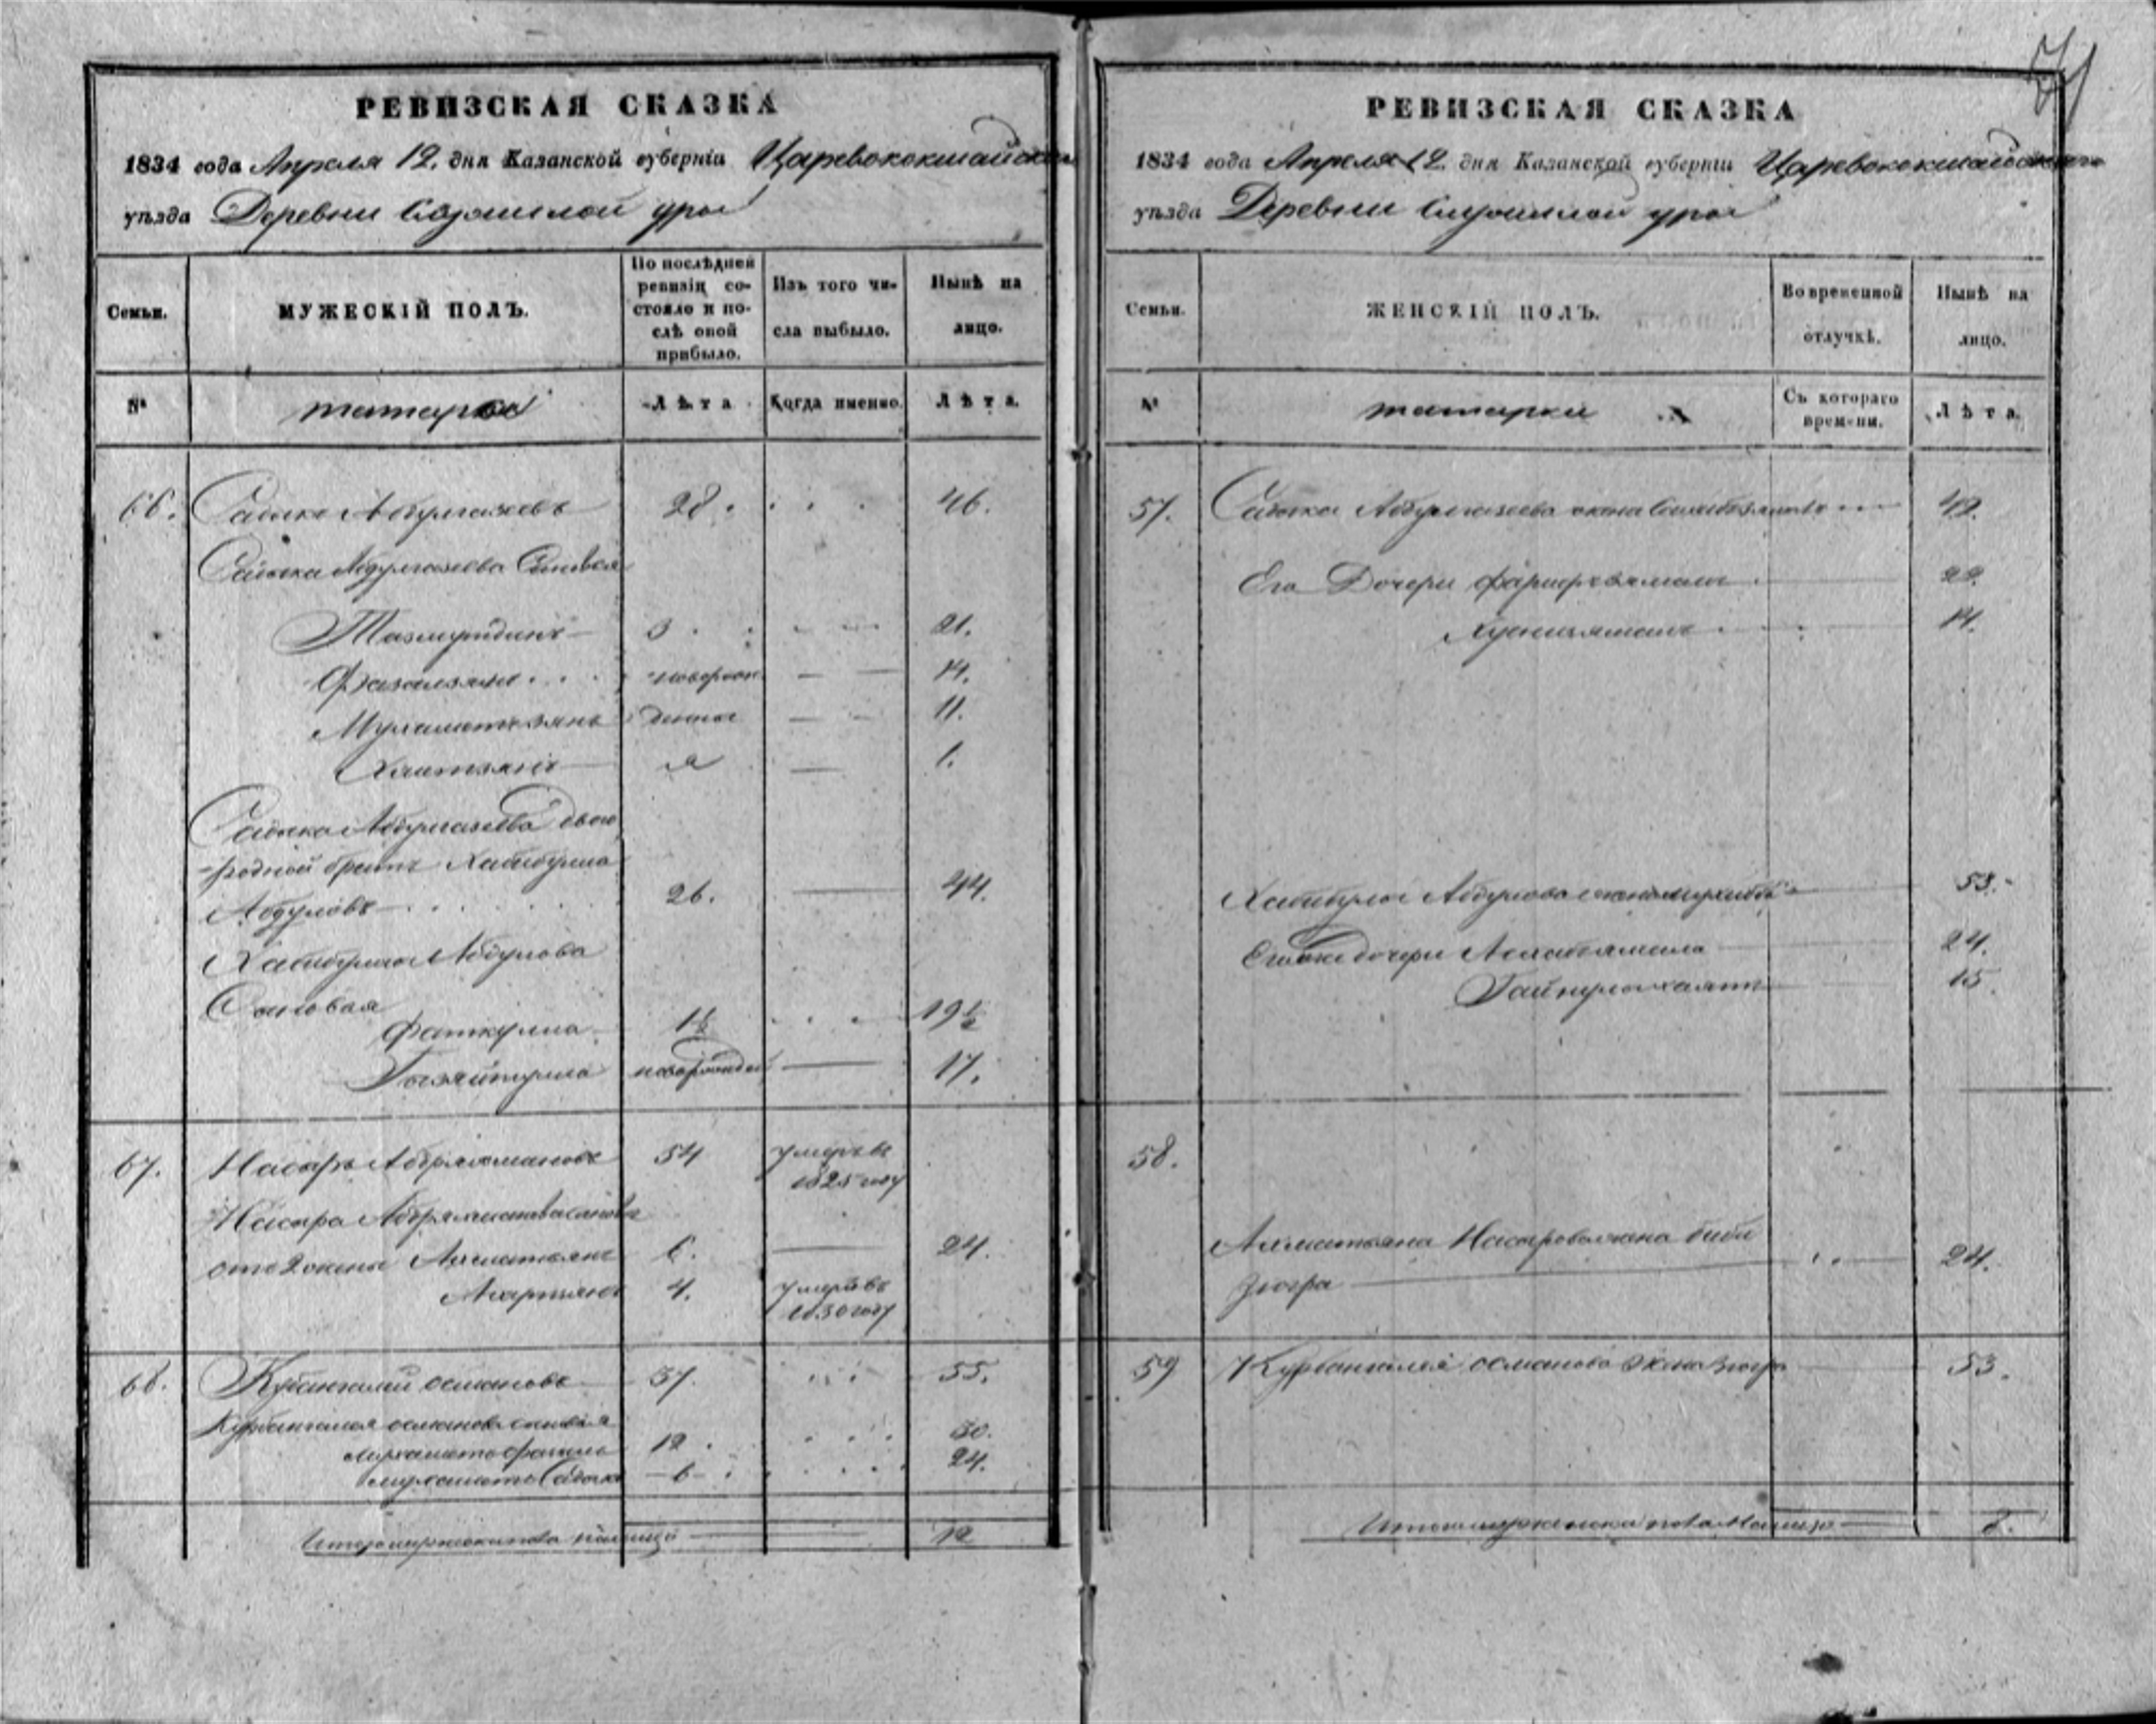 71
РЕВИЗСКАЯ СКАЗКА
1834 года Апреля 12. дня Казанской губерніи Царевококшайскаго
уѣзда Деревни уры
Семьи.
МУЖЕСКІЙ ПОЛЪ.
По послѣдней ревизіи состояло и послѣ оной прибыло.
Изъ того числа выбыло.
Нынѣ на лицо.
№
татары
Лѣта
Когда именно.
Лѣта.
66. Садыкъ Абдулгазеевъ 28. 46.
Садыка Абдулгазеева Сыновья
Тазмутдинъ 3 21.
Фазылзянъ новорож 14.
Мухаметзянъ денные 11.
а 1.
Садыка Абдулгазеева двою
родной братъ Хабибулла
Абдуловъ 26. 44.
Хабибуллы Абдулова
Сыновья
Фаткулла 1½ 19½
новорожден 17.
67. Насыръ Абдрахмановъ 54 умеръ въ
1825 году
Насыра Абдрахманова сыновья
отъ 2 жены Ахматьянъ 6. 24.
4. умеръ въ
1830 году
68. Курбангалей османовъ 37. 55.
Курбангалея османова сыновья
мухаметъ 12. 30.
мухаметъ Садыкъ 6 24.
Итого мужеска пола налицо 12
РЕВИЗСКАЯ СКАЗКА
1834 года Апреля 12. дня Казанской губерніи Царевококшайскаго
уѣзда Деревни уры
Семьи.
ЖЕНСКІЙ ПОЛЪ.
Во временной отлучкѣ.
Нынѣ на лицо.
№
татарки
Съ котораго времени.
Лѣта.
57. Садыка Абдулгазеева жена 42.
Его Дочери 22.
Хуснизямалъ 14.
Хабибуллы Абдулова жена 53.
Его же дочери 24.
15.
58.
Ахматьяна Насырова жена биби
Зюгра 24.
59 Курбангалея османова жена Зюгра 53.
Итого женска пола налицо 8.